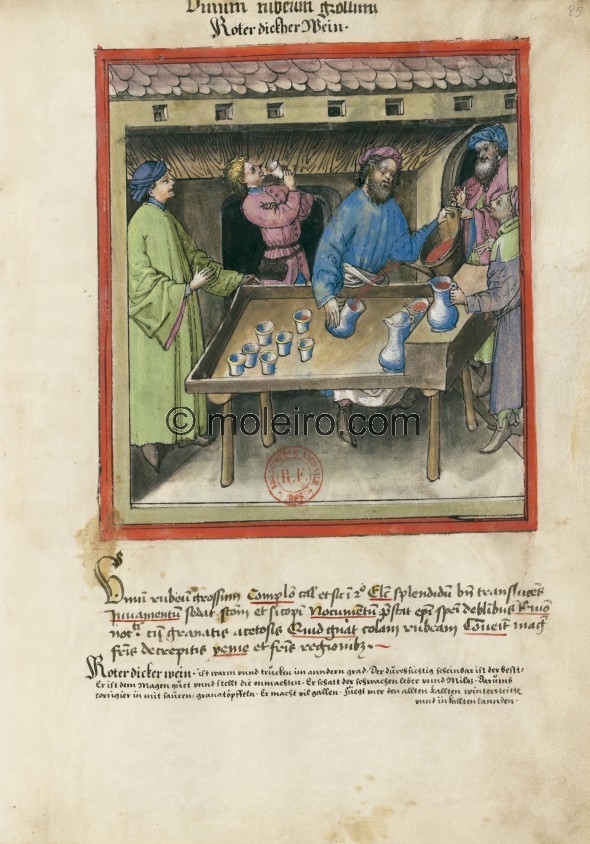 Vinum rubeum grossum
Roter dickher Wein·
85
© moleiro.com
R.F.
Vinum rubeum grossum Complo cal et sic i 2° Elc splendidum bn translucens
Juvamentum sedat et Nocumentum epi Remo
not granatis acetosis Quid gnat colam rubeam Conveit mag
fris decrepitis yeme et fris regionibz·
Roter dicker wein· ist warm vund trucken im anndern grad· Der durchsichtig scheinbar ist der besst·
Er ist dem Magen guet vund stellt die onmachten· Er schatt der schwachen leber vund Miltz· Darumb
corrigier in mit sauren· granatöpffeln· Er macht vil gallen· fuegt mer den allten kallten winterszeitt
vund in kallten lannden·